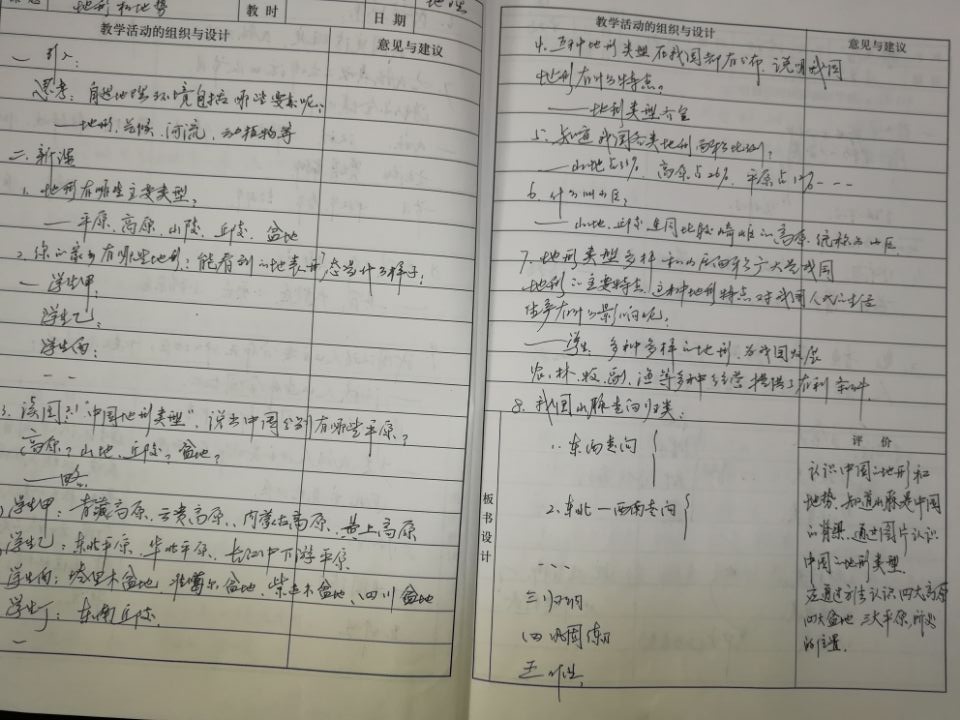 地形和地势
教时
日期
地理
教学活动的组织与设计
意见与建议
一 引入:
思考:自然地理环境包括哪些要素呢?
——地形、气候、河流、动植物等
二、新课
1、地形有哪些主要类型?
——平原、高原、山陵、丘陵、盆地
2、你的家乡有哪些地形?能看到的地表形态是什么样子?
— 学生甲:
学生乙:
学生丙:
3、读图 "中国地形类型",说出中国分别有哪些平原?
高原?山地、丘陵?盆地?
——略
学生甲:青藏高原、云贵高原、内蒙古高原、黄土高原
学生乙:东北平原、华北平原、长江中下游平原
学生丙:塔里木盆地、准噶尔盆地、柴达木盆地、四川盆地
学生丁:东南丘陵
教学活动的组织与设计
意见与建议
4、五种地形类型在我国都有分布,说明我国
地形有什么特点。
——地形类型齐全
5、知道我国各类地形所占比例?
——山地占33%、高原占26%、平原占12%---
6、什么叫山区?
——山地、丘陵连同比较崎岖的高原统称为山区
7、地形类型多样和山区面积广大是我国
地形的主要特点,这种地形特点对我国人民的生活
生产有什么影响呢?
——学生:多种多样的地形,为我国发展
农、林、牧、副、渔等多种经营提供了有利条件
8、我国山脉走向归类:
1、东西走向
2、东北—西南走向
三 归纳
四 巩固练习
五 作业
板书设计
评价
认识中国的地形和
地势,知道山脉是中国
的骨架,通过图片认识
中国的地形类型
通过 认识四大高原
四大盆地 三大平原,所处
的位置.